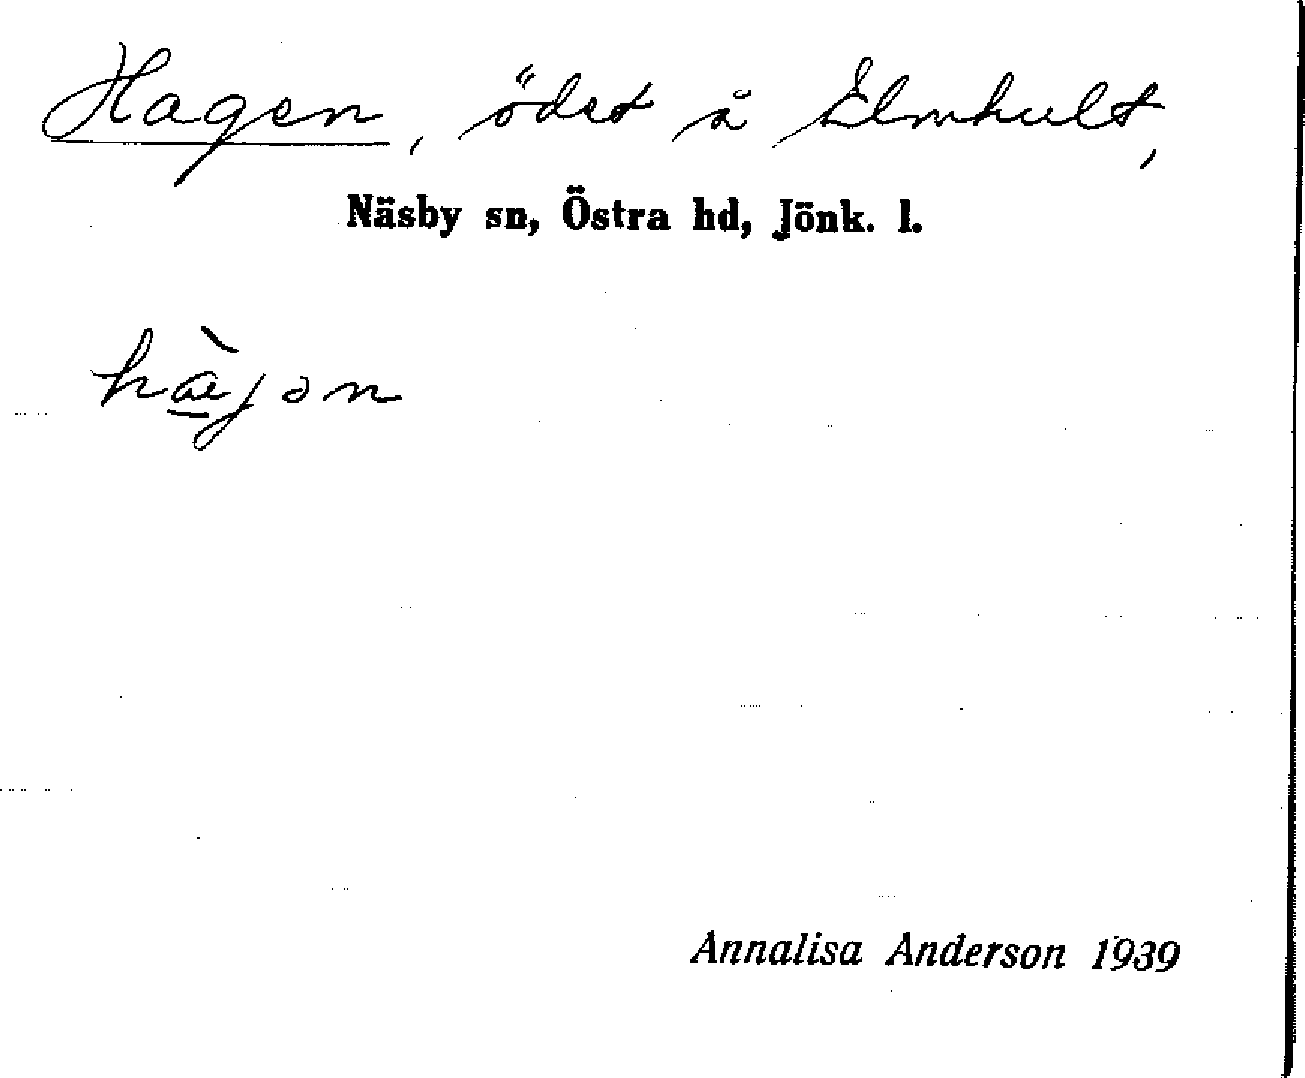 Hagen, ödet å Elmhult,
Näsby sn, Östra hd, Jönk. l.
hæ̠̀jən
Annalisa Anderson 1939